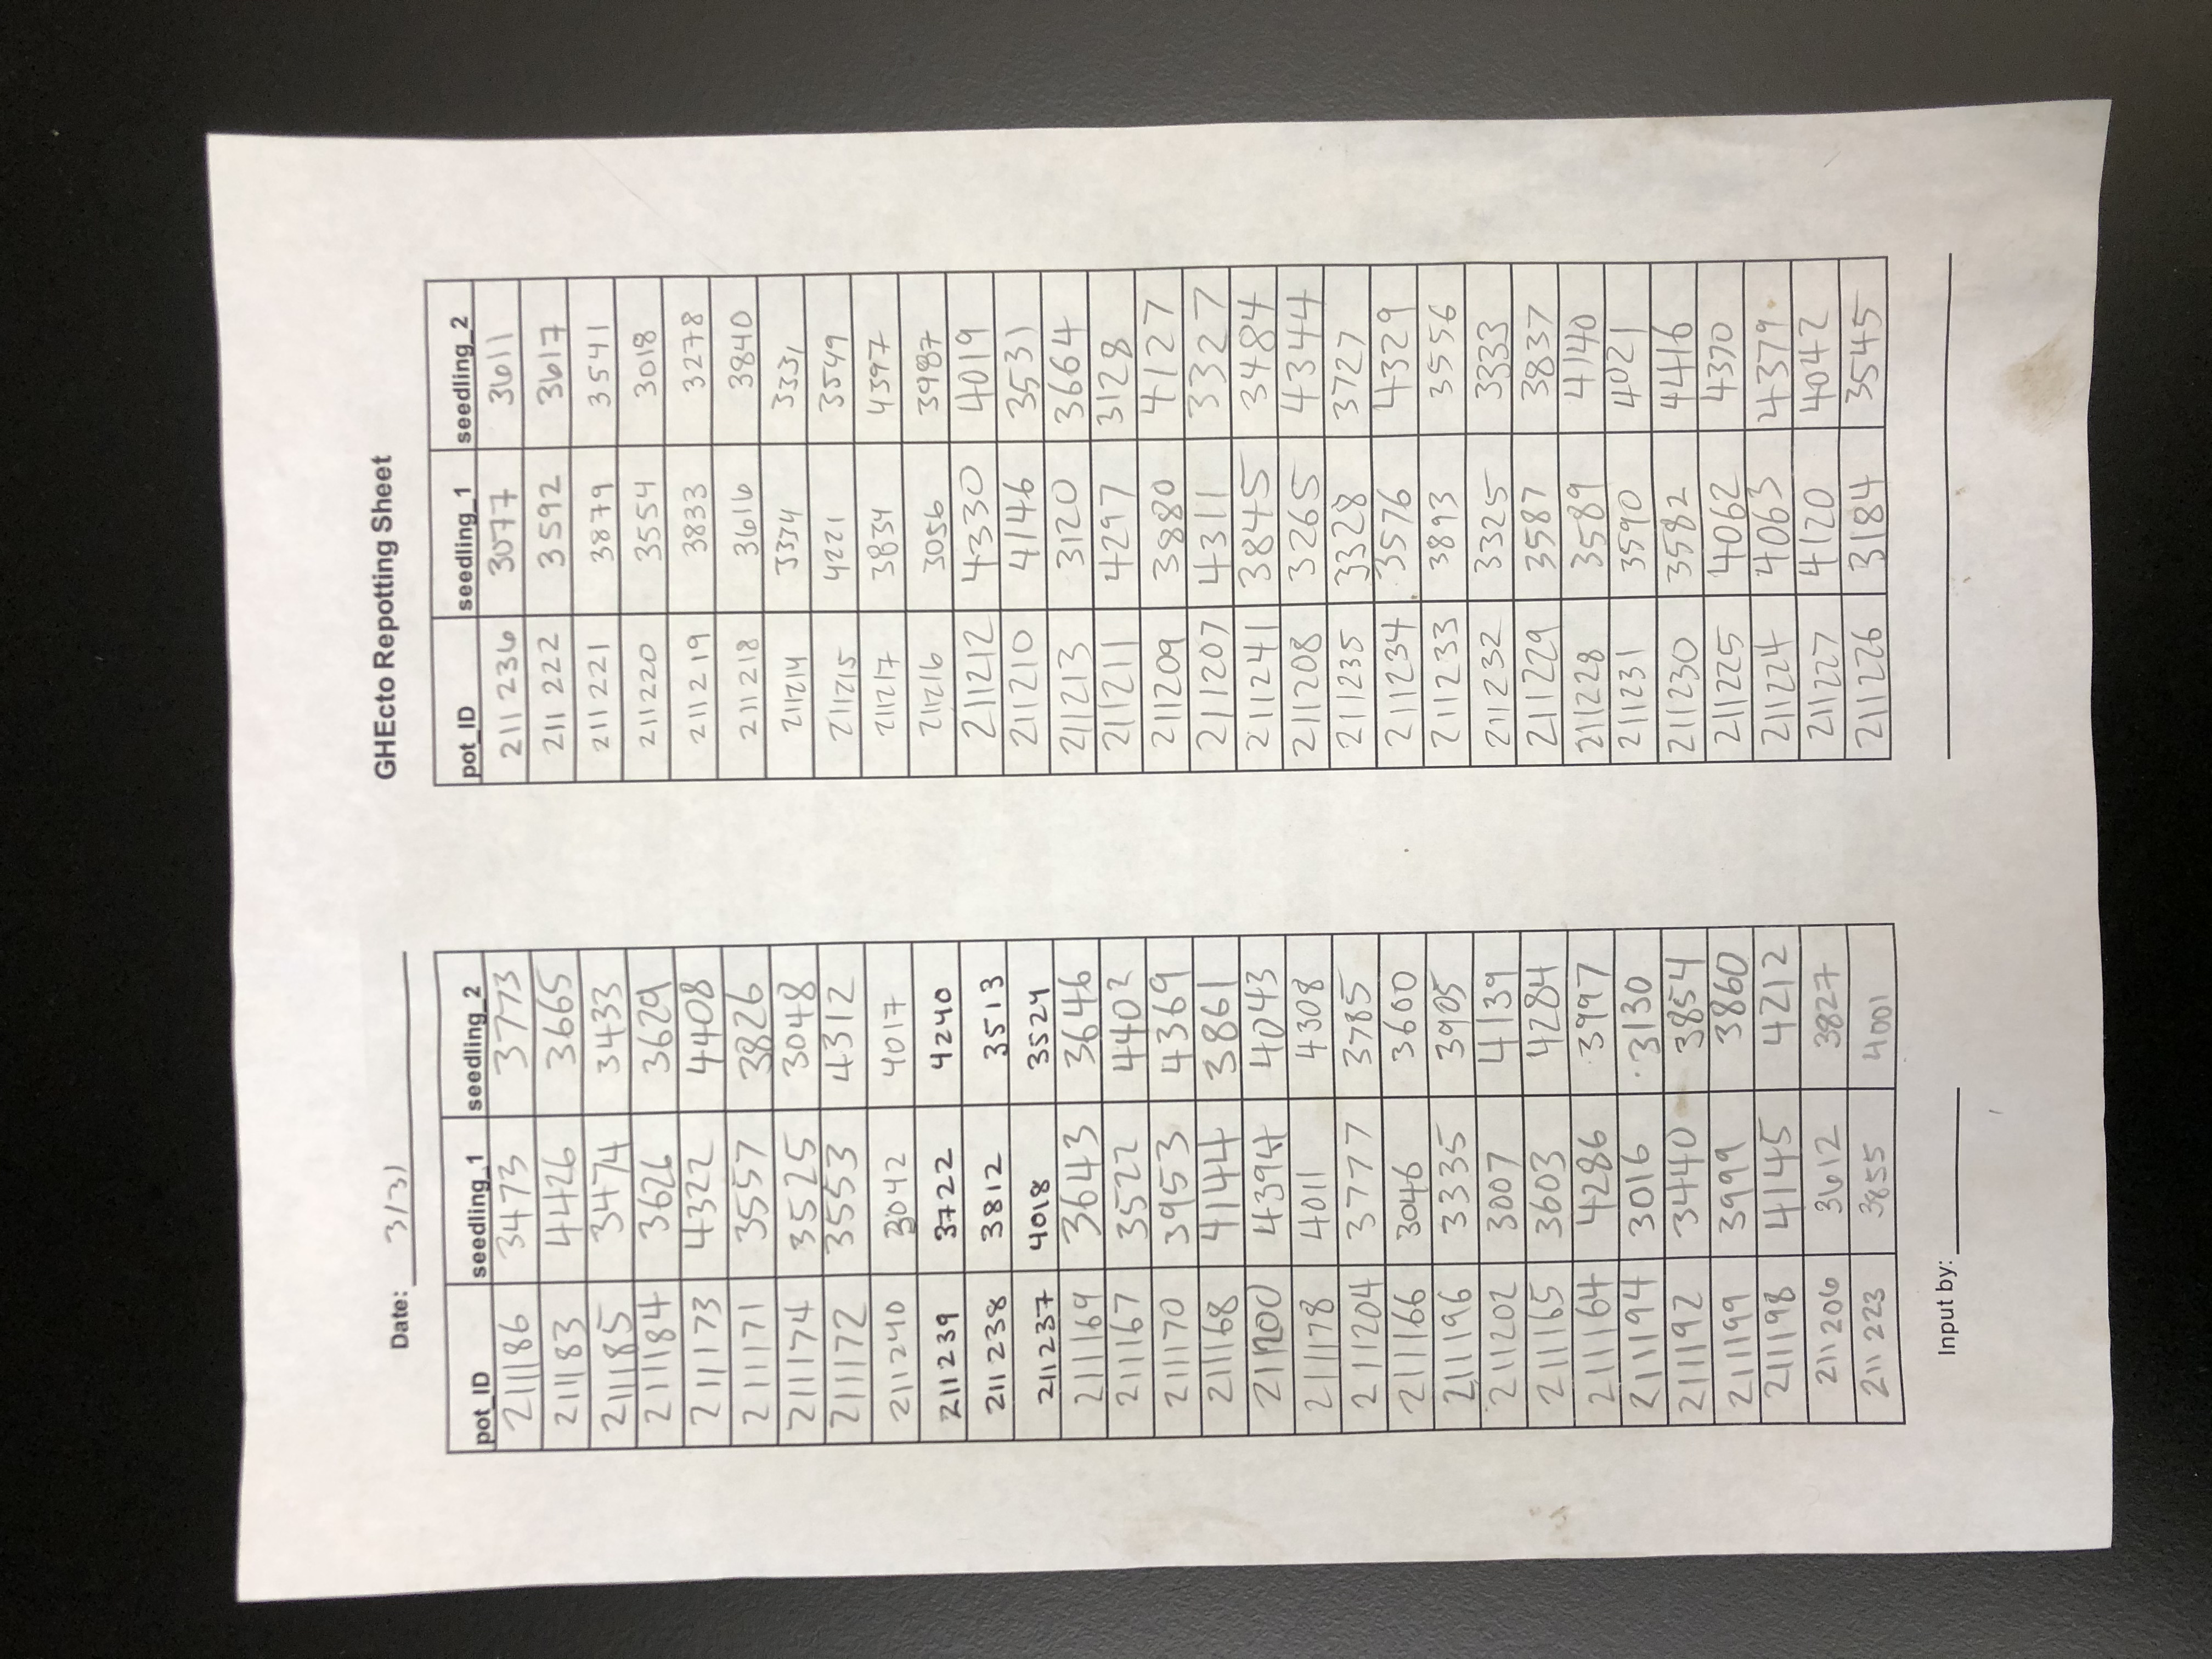 Date: 3/31
pot_ID seedling_1 seedling_2
211186 3473 3773
211183 4426 3665
211185 3474 3433
211184 3626 3629
211173 4322 4408
211171 3557 3826
211174 3525 3048
211172 3553 4312
211240 3042 4017
211239 3722 4240
211238 3812 3513
211237 4018 3524
211169 3643 3646
211167 3522 4402
211170 3953 4369
211168 4144 3861
211200 4394 4043
211178 4011 4308
211204 3777 3785
211166 3046 3600
211196 3335 3905
211202 3007 4139
211165 3603 4284
211164 4286 3997
211194 3016 3130
211192 3440 3854
211199 3999 3860
211198 4145 4212
211206 3612 3827
211223 3855 4001
Input by:
GHEcto Repotting Sheet
pot_ID seedling_1 seedling_2
211236 3077 3611
211222 3592 3617
211221 3879 3541
211220 3554 3018
211219 3833 3278
211218 3616 3840
211214 3334 3331
211215 4221 3549
211217 3834 4397
211216 3056 3987
211212 4330 4019
211210 4146 3531
211213 3120 3664
211211 4297 3128
211209 3880 4127
211207 4311 3327
211241 3845 3484
211208 3265 4344
211235 3328 3727
211234 3576 4329
211233 3893 3556
211232 3325 3333
211229 3587 3837
211228 3589 4140
211231 3590 4021
211230 3582 4416
211225 4062 4370
211224 4063 4379
211227 4120 4042
211226 3184 3545